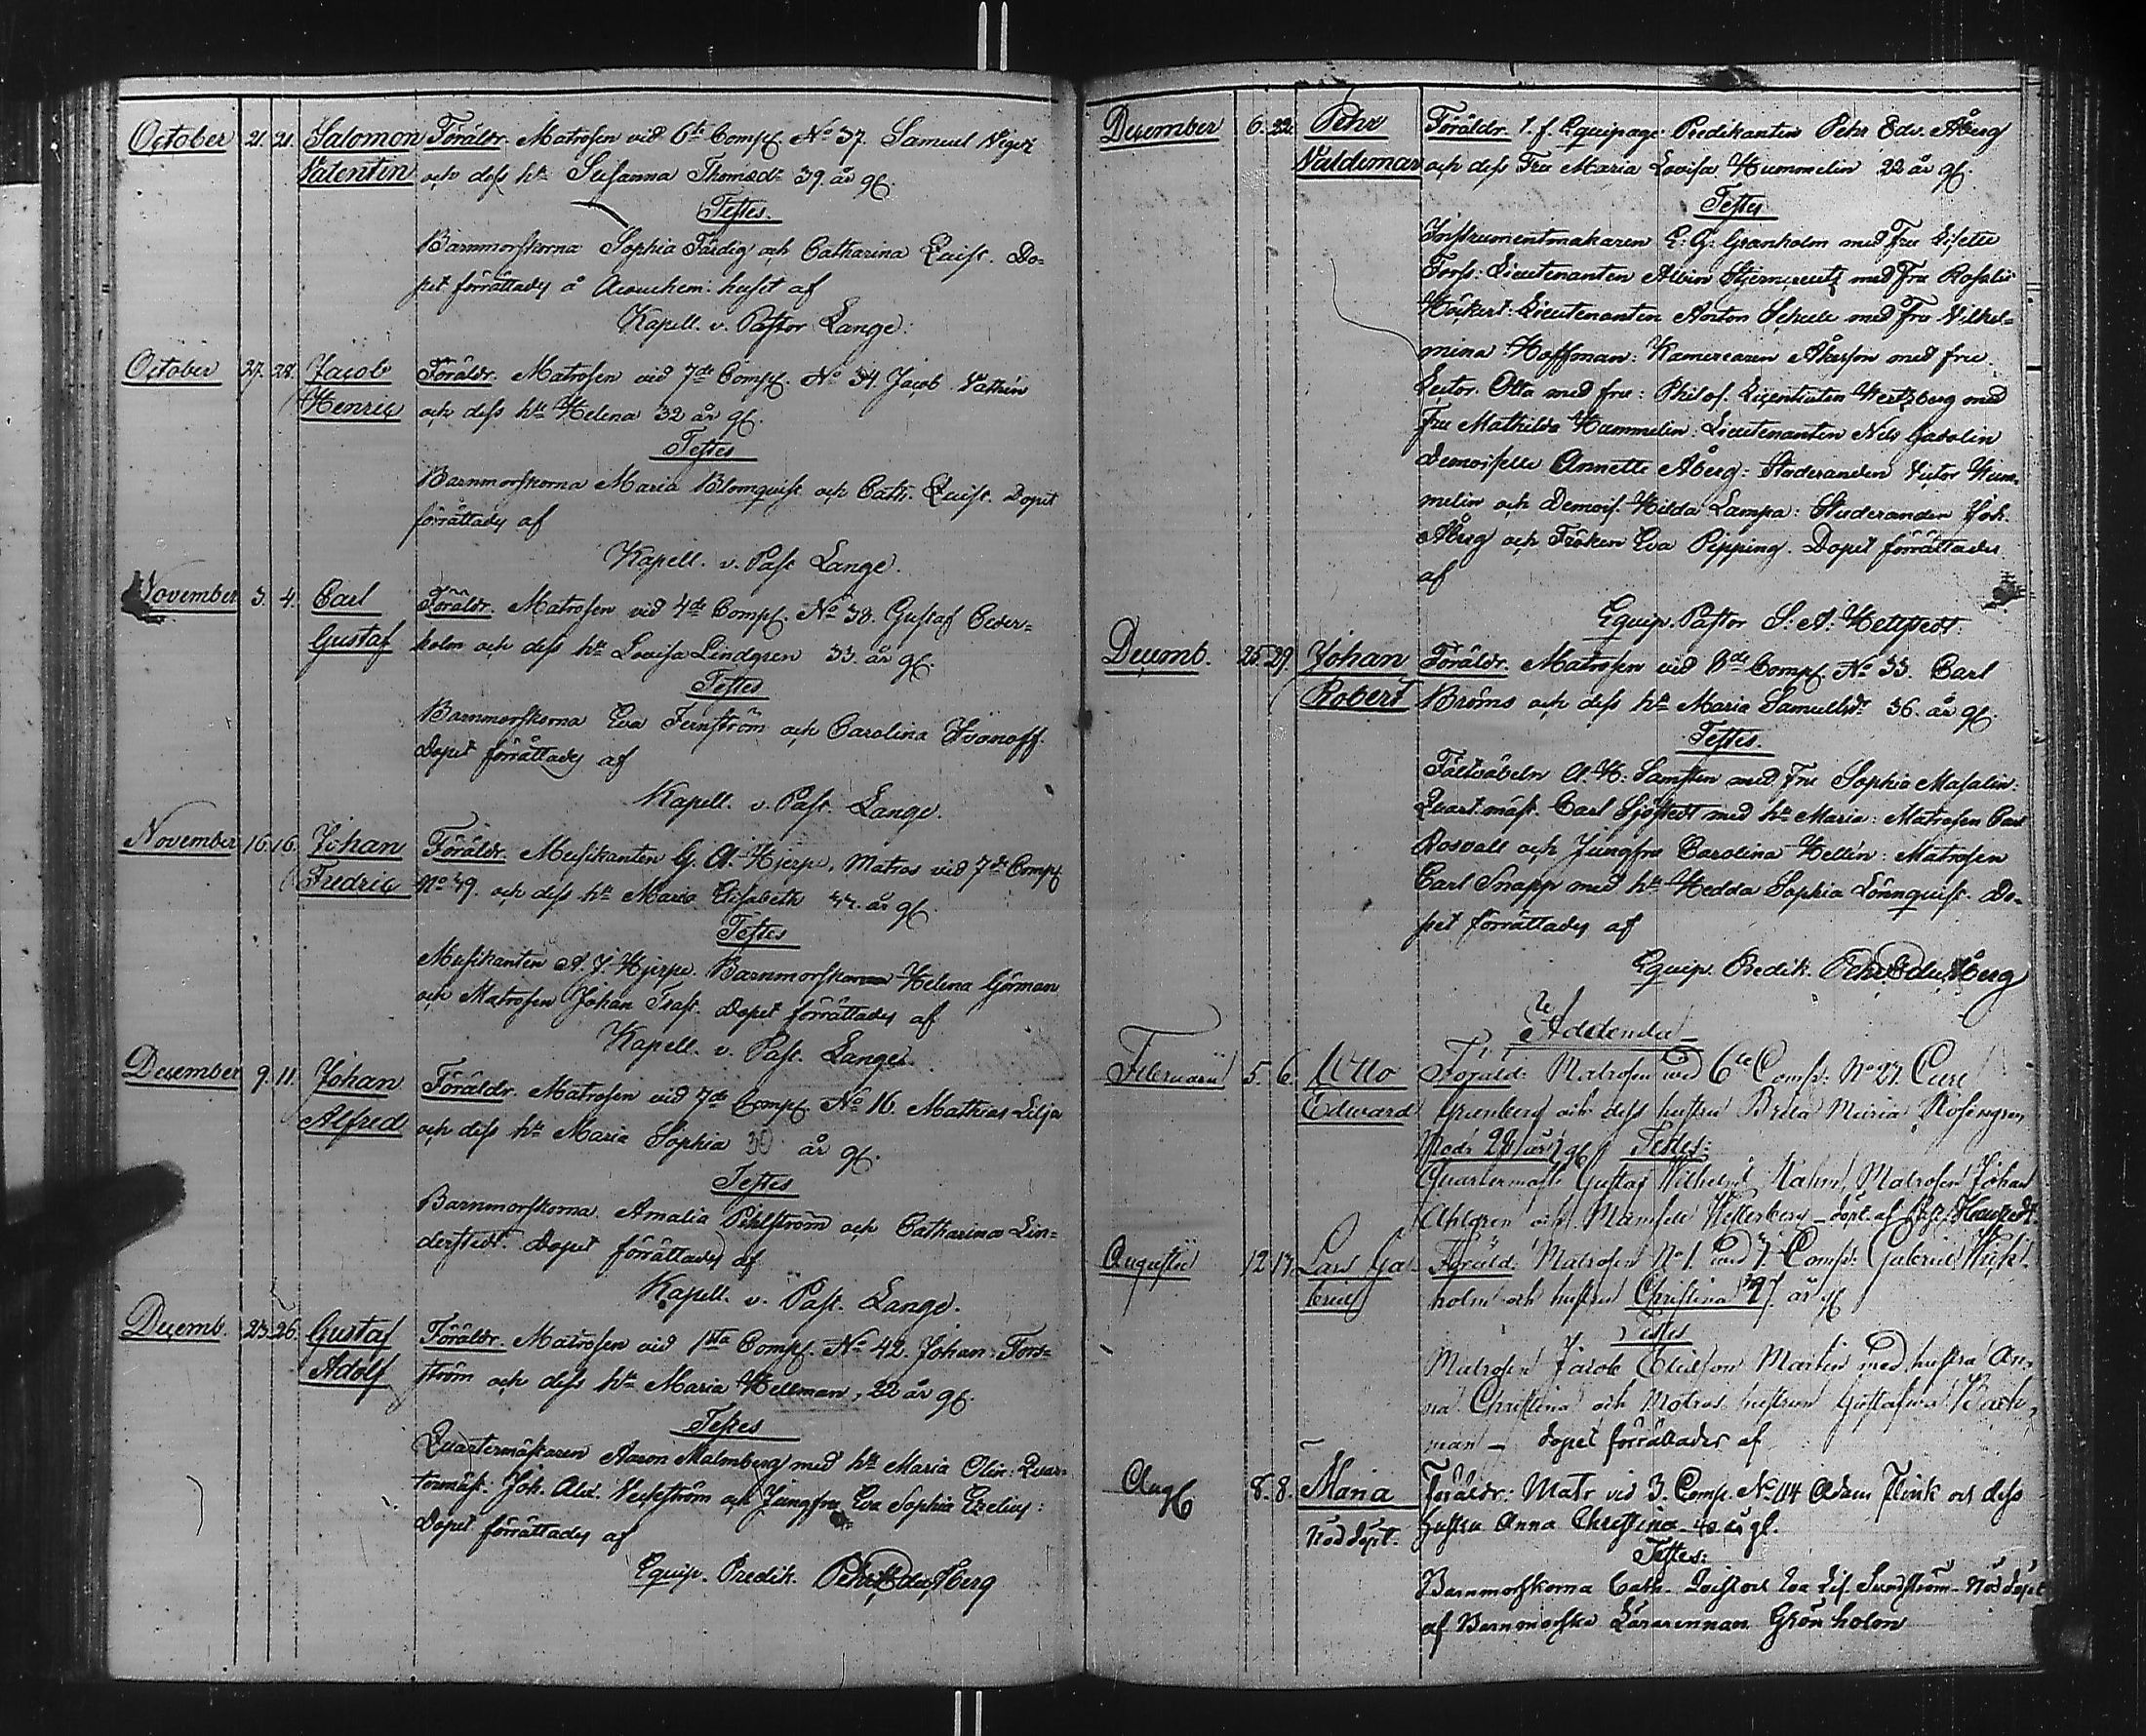 October 21. 21. Salomon Föräldr. Matrosen vid 6te Comp. No 37. Samuel
Valentin och dess hu Susanna Thomasdr 39. år gl.
Testes.
Barnmorskorna Sophia Färdig och Catharina Quist. Do=
pet förrättades å Accouchem: huset af
Kapell. v. Pastor Lange.
October 27. 28. Jacob Föräldr. Matrosen vid 7de Comp. No 34. Jacob
Henric och dess hu Helena 32 år gl.
Testes
Barnmorskorna Maria Blomquist och Cath. Quist. Dopet
förrättades af
Kapell. v. Past. Lange.
November 3. 4. Carl Föräldr. Matrosen vid 4de Comp. No 38. Gustaf Ceder=
Gustaf holm och dess hu Lovisa Lindgren 33. år gl.
Testes
Barnmorskorna Eva Fernström och Carolina Ivanoff.
Dopet förrättades af
Kapell. v. Past. Lange.
November 16. 16. Johan Föräldr. Musikanten G. A. Hjerpe, Matros vid 7de Comp.
Fredric No 49. och dess hu Maria Elisabeth år gl.
Testes
Musikanten A. J. Hjerpe. Barnmorskan Helena Görman
och Matrosen Johan Trast. Dopet förrättades af
Kapell. v. Past. Lange.
December 9. 11. Johan Föräldr. Matrosen vid 7de Comp. No 16. Mathias Lilja
Alfred och dess hu Maria Sophia 30 år gl.
Testes
Barnmorskorna Amalia Pihlström och Catharina Lin=
derstedt. Dopet förrättades af
Kapell. v. Past. Lange.
Decemb. 23. 26. Gustaf Föräldr. Matrosen vid 1sta Comp. No 42. Johan Fors=
Adolf ström och dess hu Maria Hellman, 22 år gl.
Testes
Quartermästaren Aaron Malmberg med hu Maria Olin: Quar=
termäst. Joh. Alex. Weckström och Jungfru Eva Sophia Ezelius:
Dopet förrättades af
Equip. Predik. Pehr Edv. Åberg
December 6. 22. Pehr Föräldr. t. f. Equipage Predikanten Pehr Edv. Åberg
Valdemar och dess Fru Maria Lovisa Hummelin 22 år gl.
Testes
Instrumentmakaren E. G. Granholm med Fru Lisette
Forss: Lieutenanten Albin Stjerncreutz med Fru Rosalie
Häckert: Lieutenanten Anton Scheele med Fru Wilhel=
mina Hoffman: Kamereraren Åkesson med fru
Lector Otta med fru: Philos. Licentiaten Hertzberg med
Fru Mathilda Hummelin: Lieutenanten Nils Gadolin
Demoiselle Annette Åberg: Studeranden Victor Hum=
melin och Demois. Hilda Lampa: Studeranden Joh.
Åberg och Fröken Eva Pipping. Dopet förrättades
af
Equip. Pastor
Decemb. 25. 29. Johan Föräldr. Matrosen vid 8de Comp. No 33. Carl
Robert Broms och dess hu Maria Samuelsdr 36. år gl.
Testes.
Fältväbeln A. H. Samsten med Fru Sophia Masalin:
Quart.mäst. Carl Sjöstedt med hu Maria: Matrosen Carl
Rosvall och Jungfru Carolina Hellén: Matrosen
Carl Snapp med hu Hedda Sophia Lönnquist. Do=
pet förrättades af
Equip. Predik. Pehr Edv. Åberg
Addenda
Februarii 5. 6. Otto Föräld: Matrosen vid 6te Comp: No 27. Carl
Edward Grönberg och dess hustru Brita Maria Rosengren
Modr 28 år gl Testes:
Quartermäst. Gustaf Wilhelm Malm, Matrosen Johan
Ahlgren och Mamsell Hellerberg - döpt af
Augusti 12 13. Lars Ga= Föräld: Matrosen No 1. vid 7. Comp: Gabriel Wick=
briel holm och hustru Christina 39 år gl
Testes
Matrosen Jacob Martin med hustru An=
na Christina och Matros hustrun Gustafva Back=
man - dopet förrättades af
Aug 8. 8. Maria Föräldr: Matr vid 3. Comp. No 114 Adam Flink och dess
Nöddöpt. hustru Anna Christina 40 år gl.
Testes:
Barnmorskorna Cath. Quist och Eva Lis. Sundström - Nöddöpt
af Barnmorske Lärarinnan Grönholm